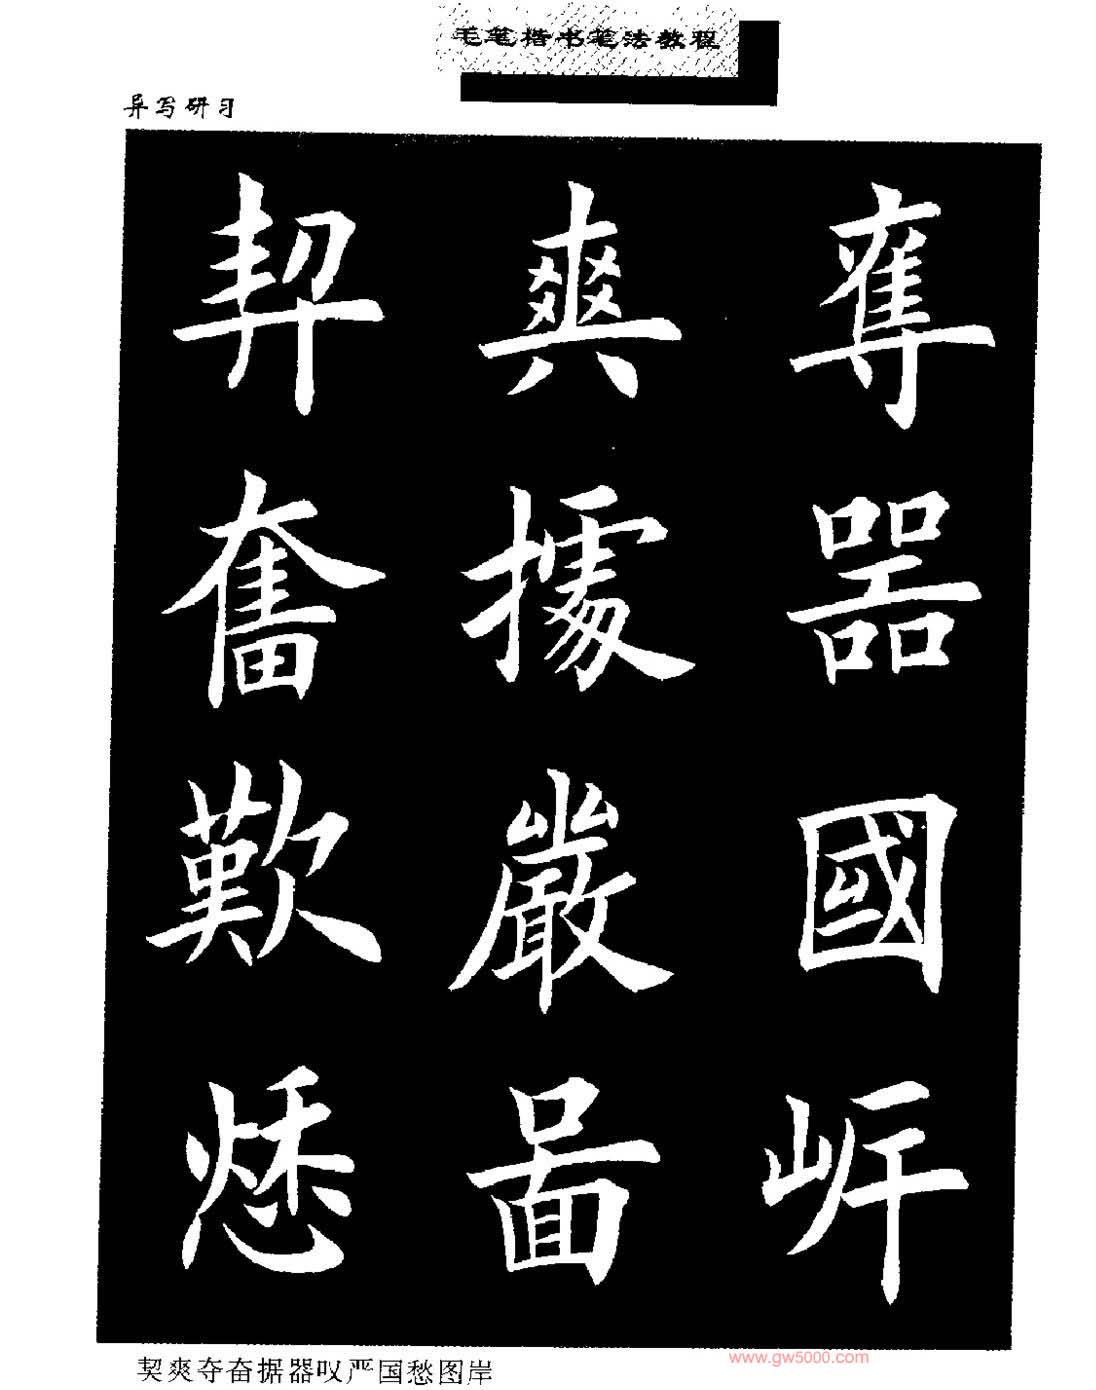 毛笔楷书笔法教程
异写研习
契爽奪
奮據器
歎嚴國
愁圖岸
契爽夺奋据器叹严国愁图岸
www.gw5000.com